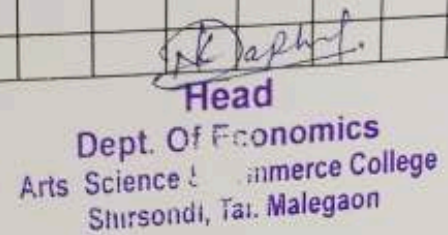 Head
Dept. Of Economics
Arts Science College
Shirsondi, Tal. Malegaon